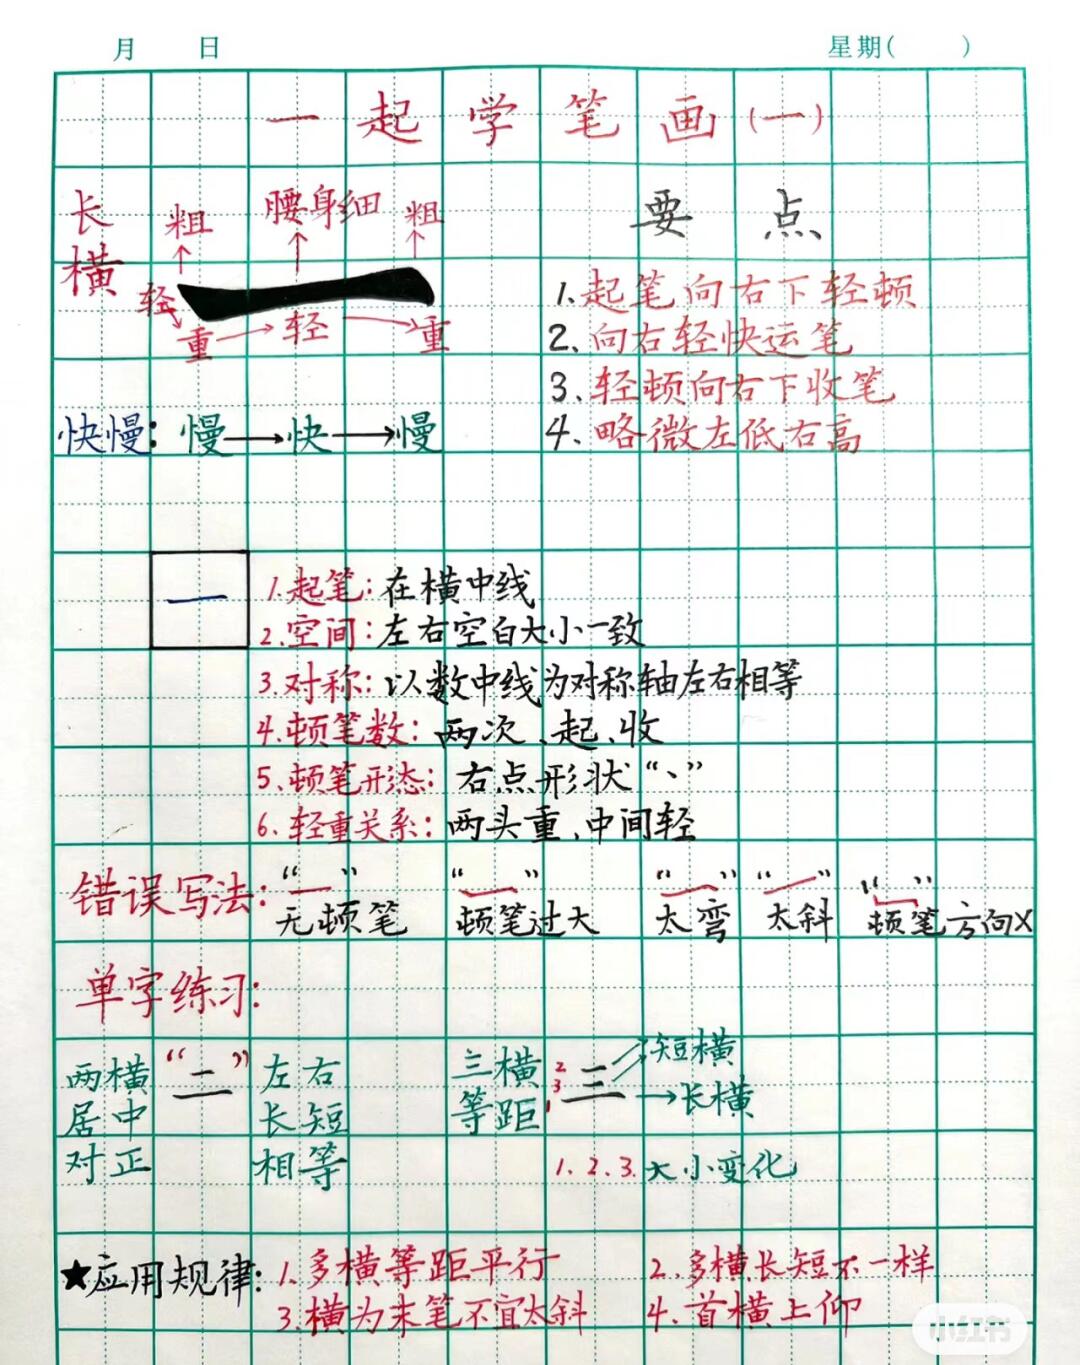 月 日 星期( )
一起学笔画(一)
长横
粗 腰身细 粗
轻 重 轻 重
快慢：慢→快→慢
要点
1.起笔向右下轻顿
2、向右轻快运笔
3、轻顿向右下收笔
4、略微左低右高
一
1.起笔：在横中线
2.空间：左右空白大小一致
3.对称：以数中线为对称轴左右相等
4.顿笔数：两次、起、收
5.顿笔形态：右点形状“、”
6.轻重关系：两头重、中间轻
错误写法：“一”无顿笔 “一”顿笔过大 “一”太弯 “一”太斜 “一”顿笔方向X
单字练习：
两横居中对正
“二”
左右长短相等
三横等距
2 3 1 三
短横
长横
1.2.3.大小变化
★应用规律：1.多横等距平行 2.多横长短不一样
3.横为末笔不宜太斜 4.首横上仰
小红书